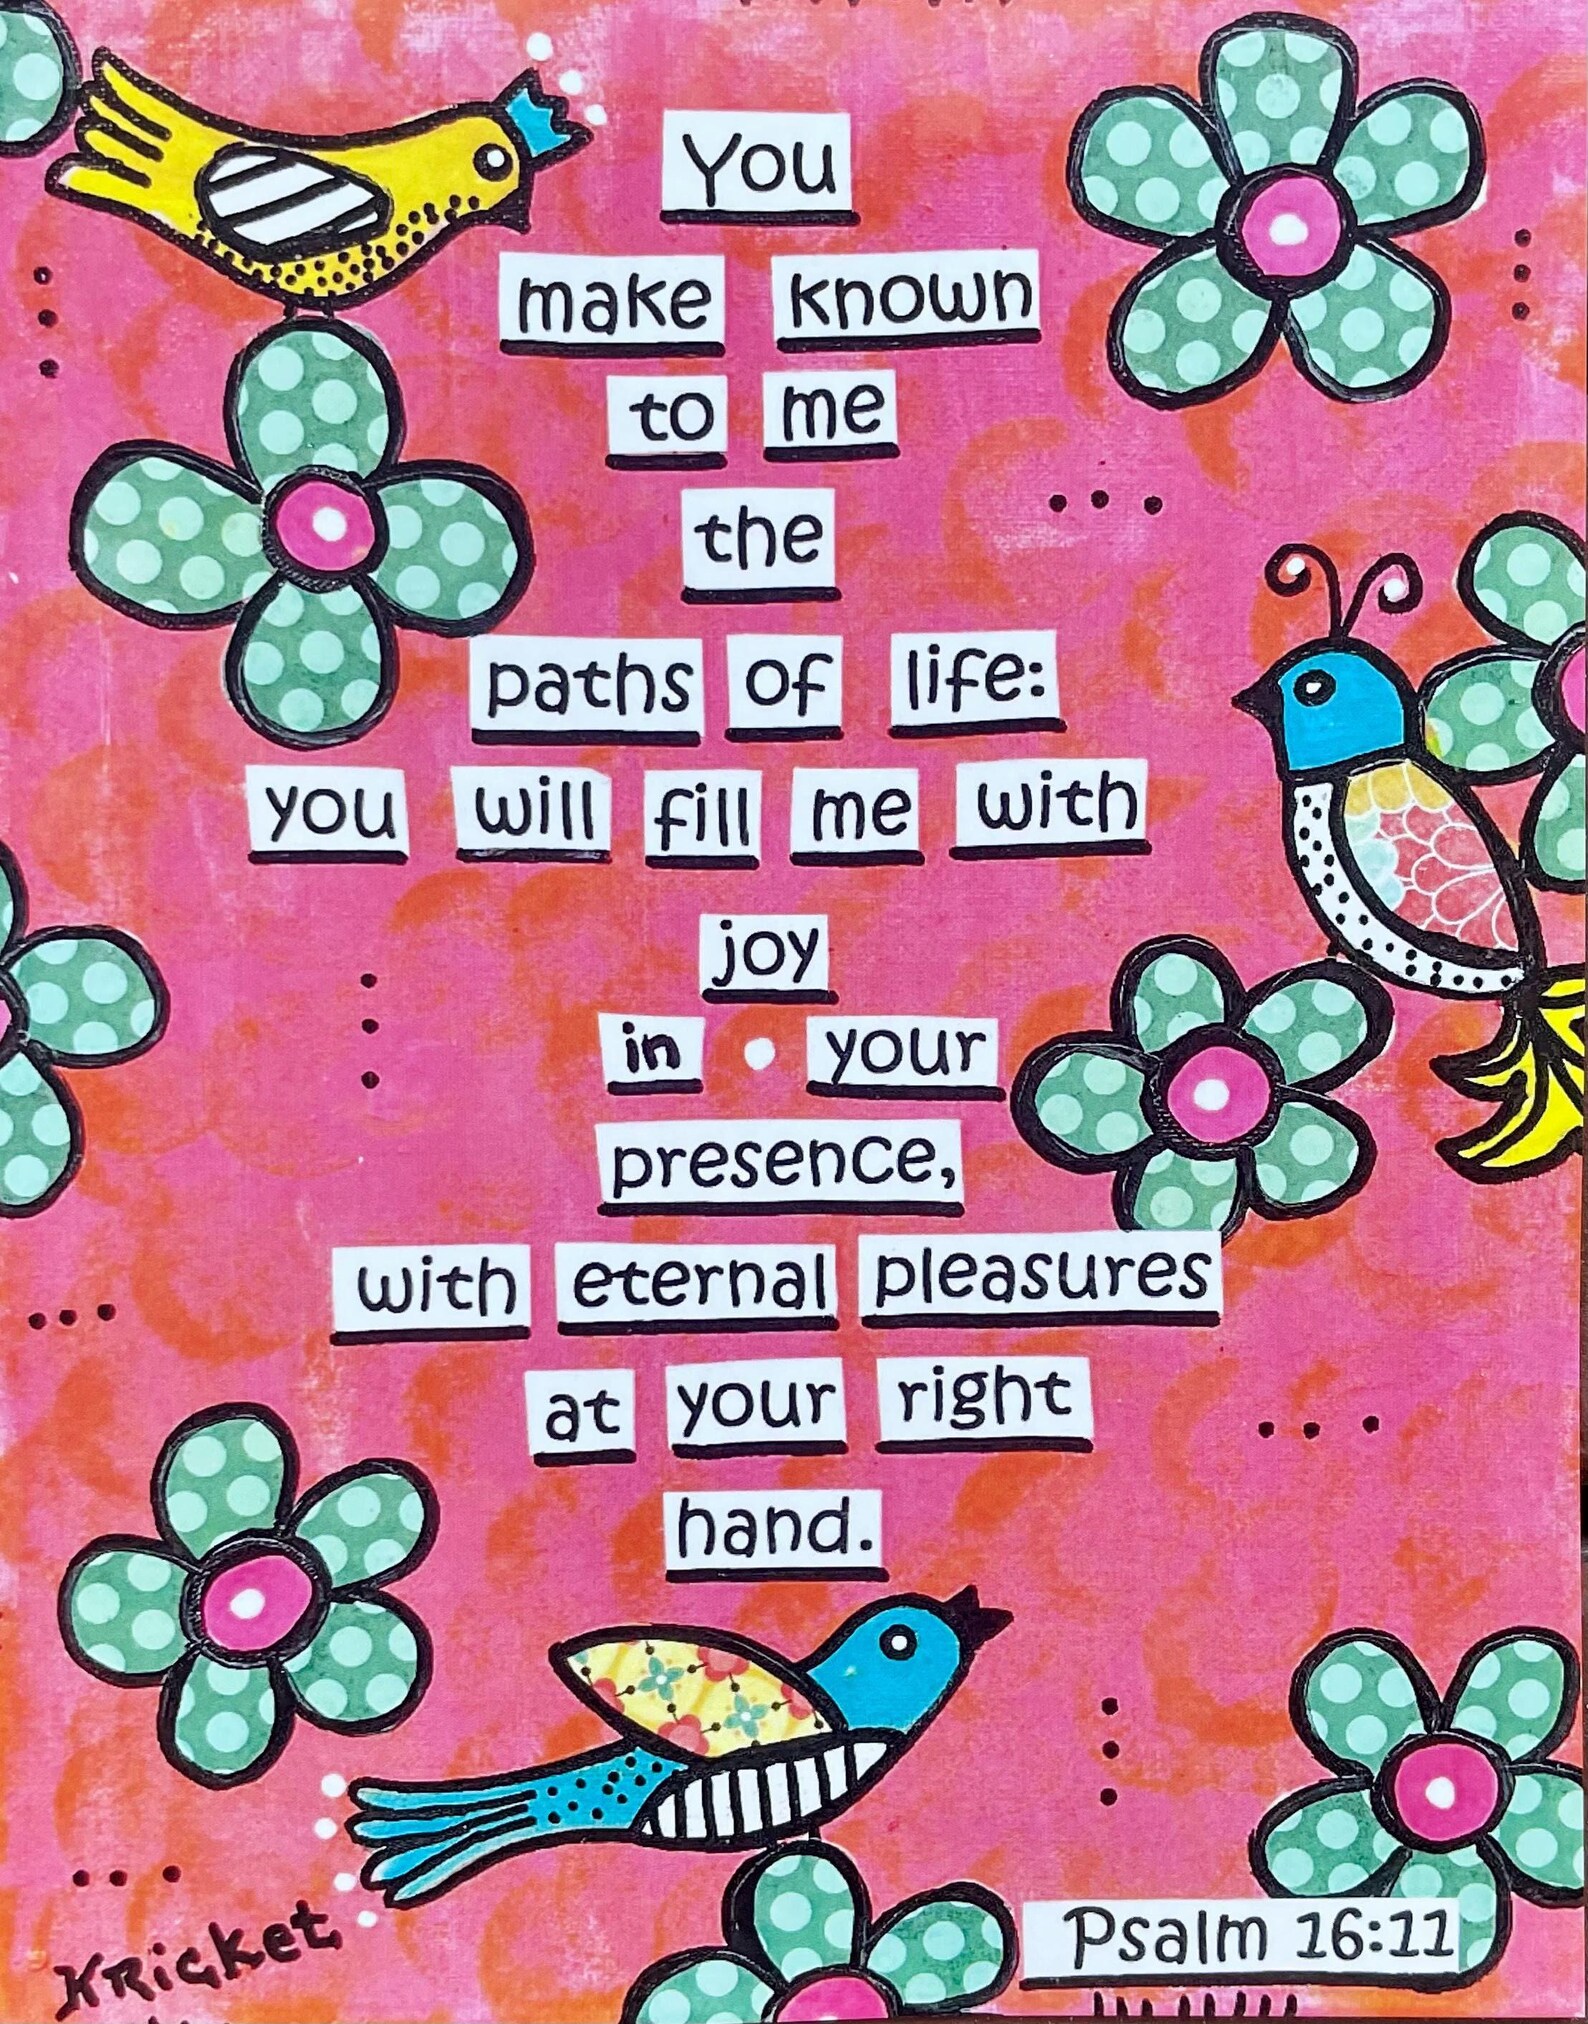 You
make known
to me
the
paths of life:
you will fill me with
joy
in your
presence,
with eternal pleasures
at your right
hand.
Psalm 16:11
Kricket